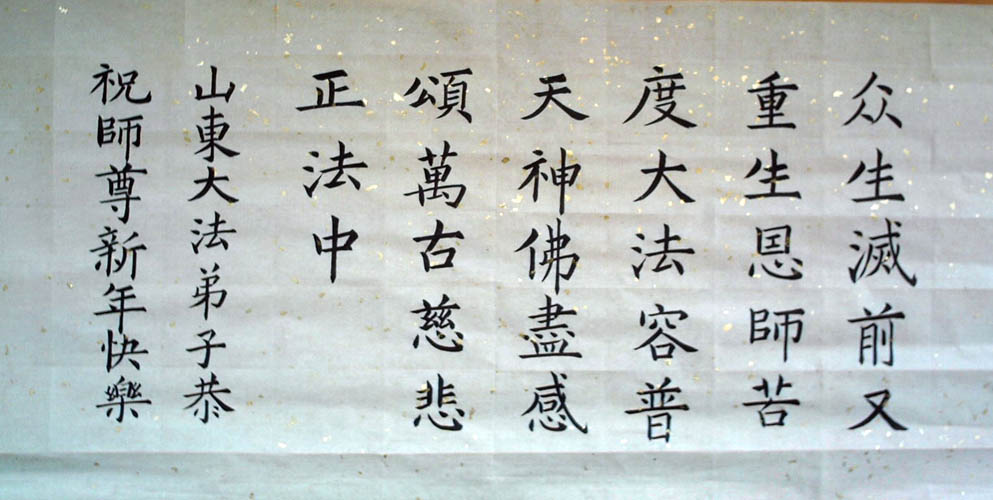 众生滅前又
重生恩師苦
度大法容普
天神佛盡感
頌萬古慈悲
正法中
山東大法弟子恭
祝師尊新年快樂